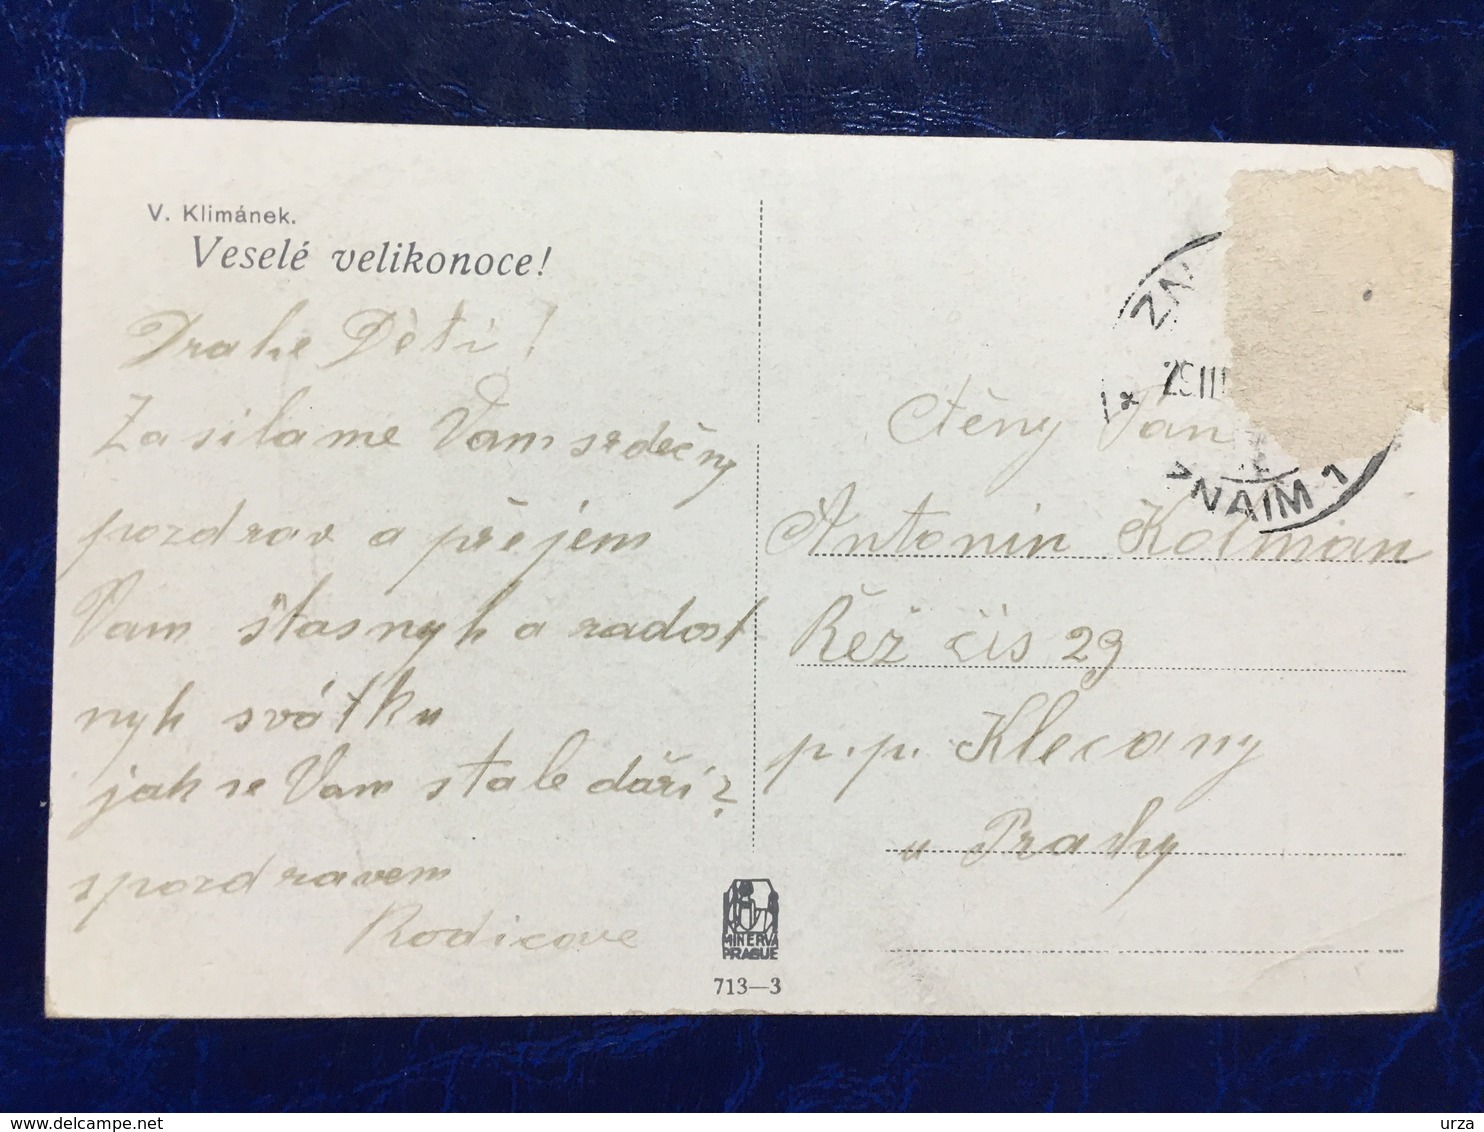 V. Klimánek.
Veselé velikonoce!
Drahe Děti!
Zasilame Vam srdečny
pozdrav a přejem
Vam štasnyh a radost
nyh svátku
jak se Vam stale daří?
spozdravem
Rodicove
MINERVA
PRAGUE
713—3
ZN
* 25 III
ZNAIM 1
Ctěny Pan
Antonin Kolman
Řež čis 29
p.p. Klecany
u Prahy
delcampe.net
urza